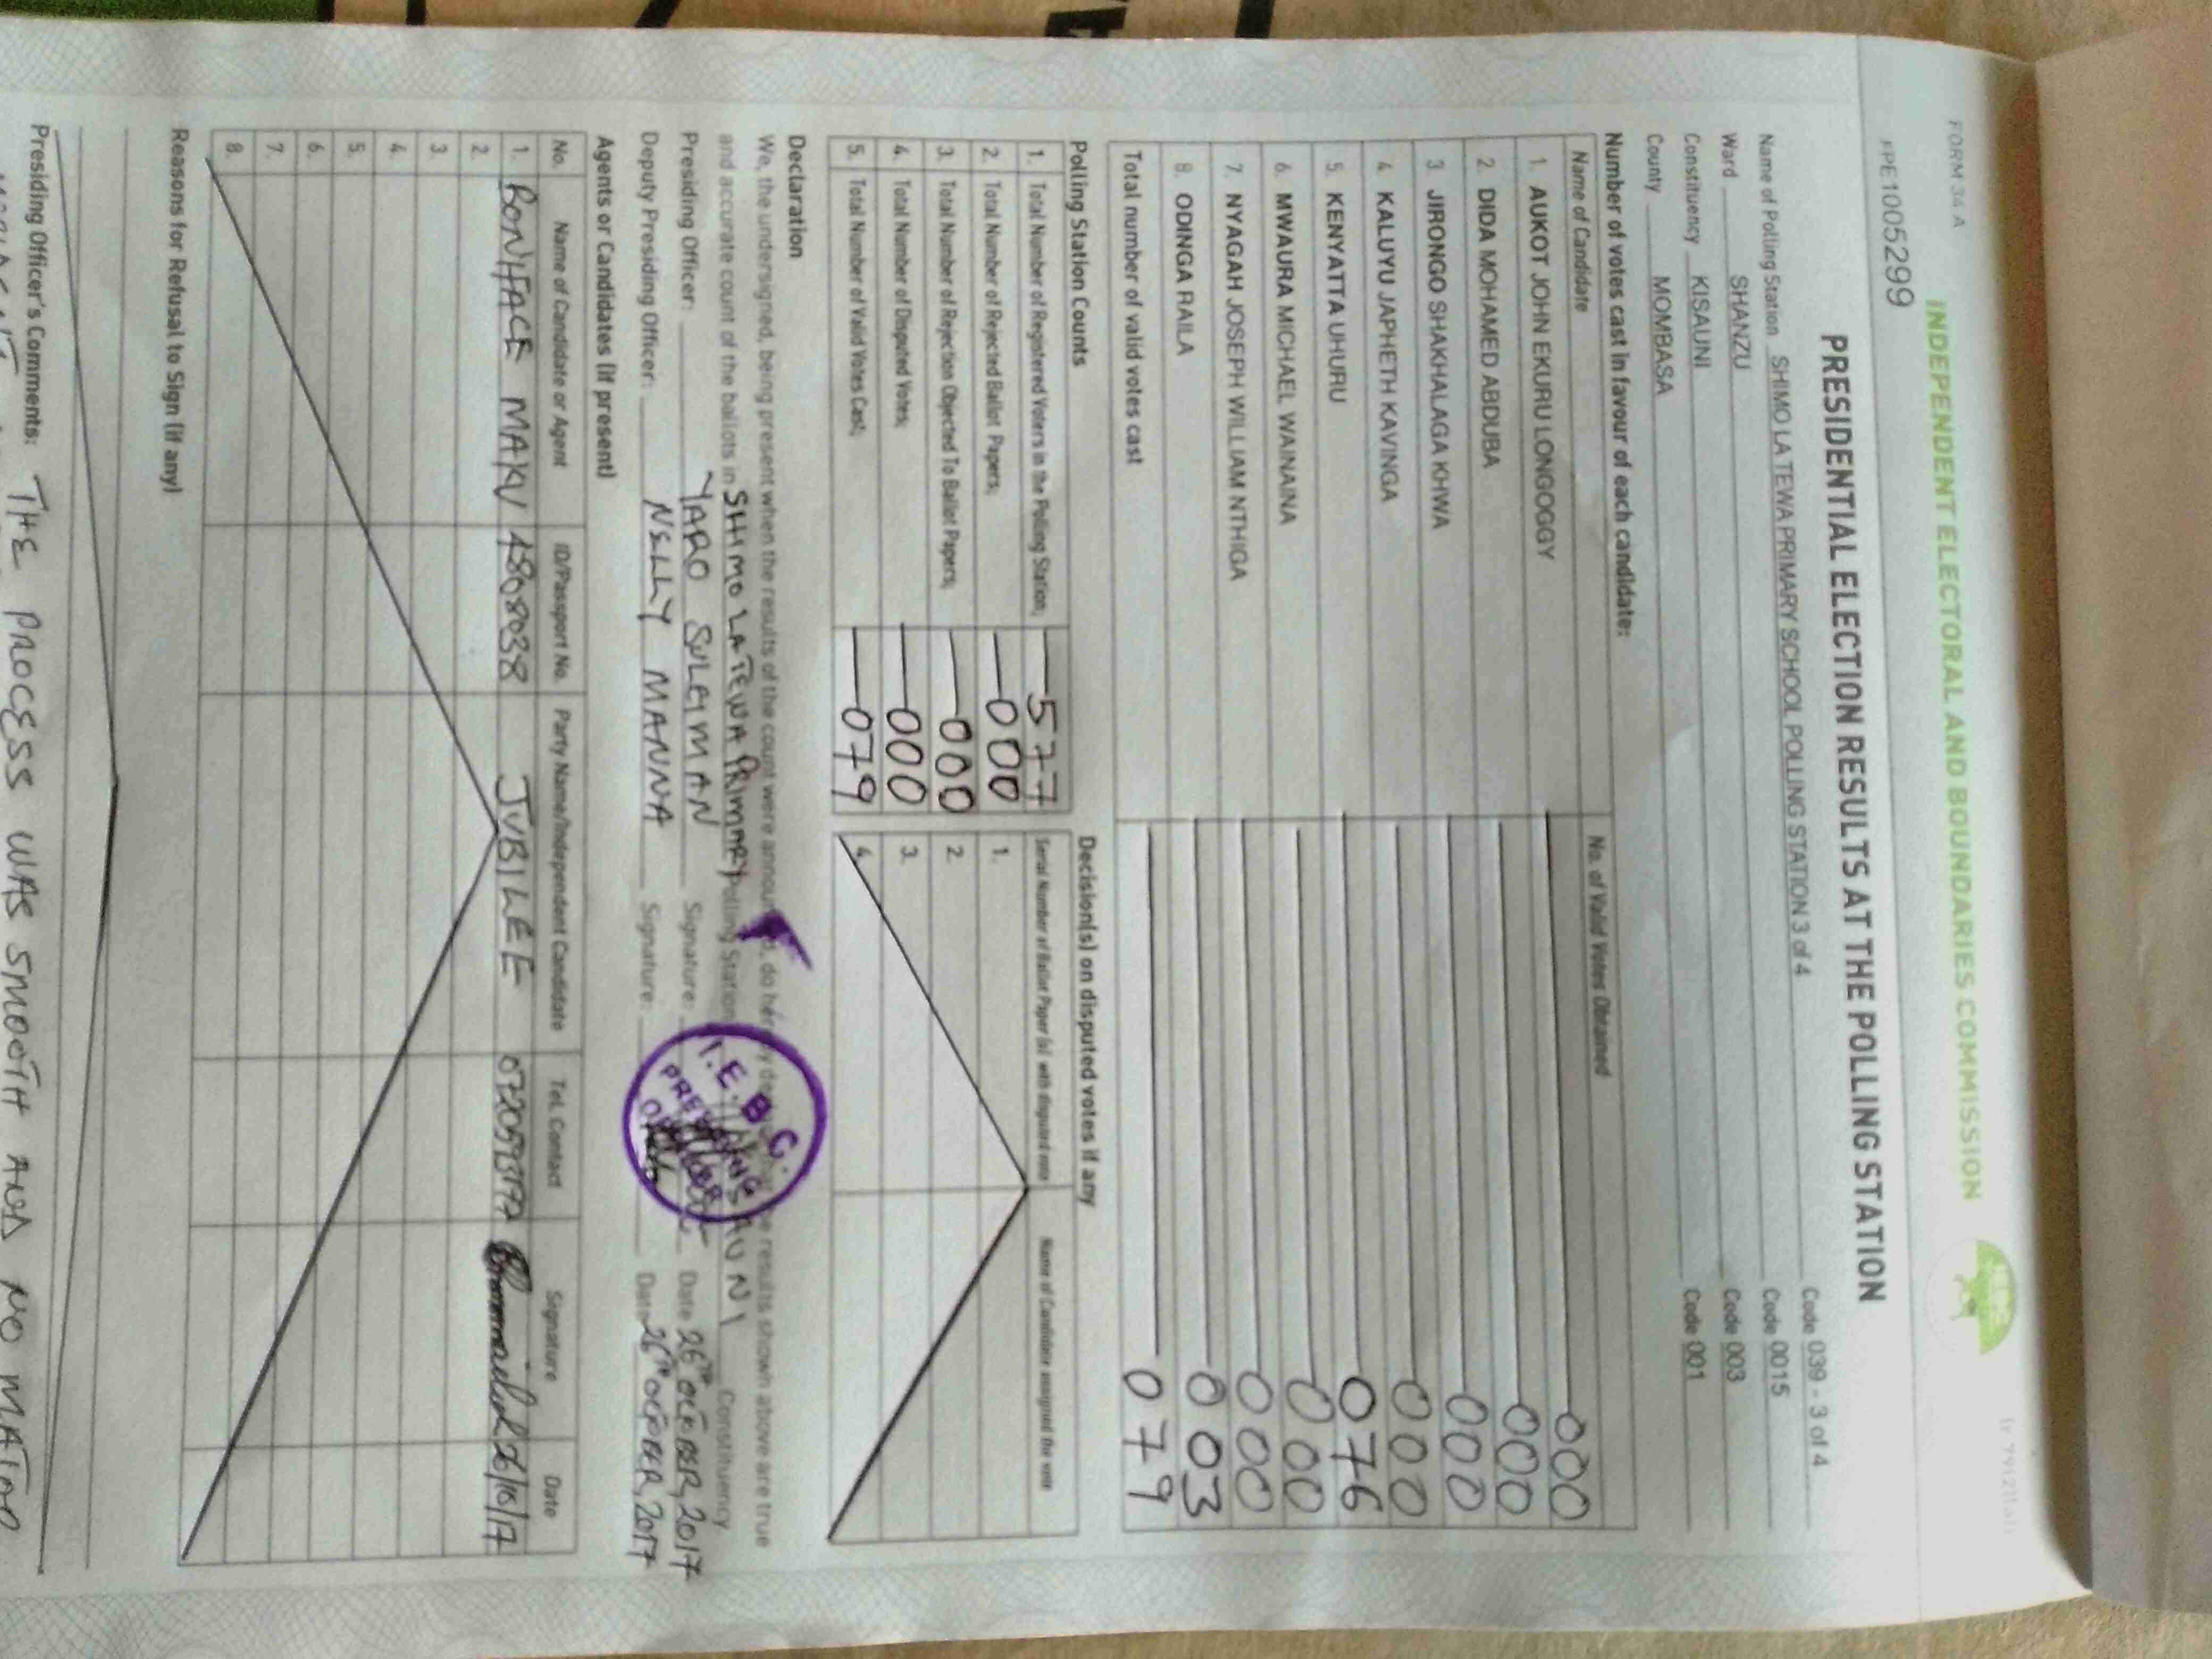 FORM 34 A
INDEPENDENT ELECTORAL AND BOUNDARIES COMMISSION
PE1005299
PRESIDENTIAL ELECTION RESULTS AT THE POLLING STATION
Name of Polling Station SHIMO LA TEWA PRIMARY SCHOOL POLLING STATION 3 of 4 Code 039 - 3 of 4
Code 0015
Ward SHANZU Code 003
Constituency KISAUNI Code 001
County MOMBASA
Number of votes cast in favour of each candidate:
Name of Candidate No. of Valid Votes Obtained
1. AUKOT JOHN EKURU LONGOGGY 000
2. DIDA MOHAMED ABDUBA 000
3 JIRONGO SHAKHALAGA KHWA 000
4 KALUYU JAPHETH KAVINGA 000
5 KENYATTA UHURU 076
6 MWAURA MICHAEL WAINAINA 000
7. NYAGAH JOSEPH WILLIAM NTHIGA 000
8. ODINGA RAILA 003
Total number of valid votes cast 079
Polling Station Counts
1. Total Number of Registered Voters in the Polling Station; 577
2. Total Number of Rejected Ballot Papers; 000
3. Total Number of Rejection Objected To Ballot Papers; 000
4. Total Number of Disputed Votes; 000
5. Total Number of Valid Votes Cast; 079
Decision(s) on disputed votes if any
Serial Number of Ballot Paper (s) with disputed vote Name of Candidate assigned the vote
1.
2.
3.
4.
Declaration
We, the undersigned, being present when the results of the count were announced, do hereby the results shown above are true
and accurate count of the ballots in SHIMO LA TEWA PRIMARY Polling Station KISAUNI Constituency
Presiding Officer: YARO SULEIMAN Signature: Date 26TH OCTOBER, 2017
Deputy Presiding Officer: NELLY MANNA Signature: Date 26TH OCTOBER, 2017
I.E.B.C.
PRESIDING
OFFICER
Agents or Candidates (if present)
No. Name of Candidate or Agent ID/Passport No. Party Name/Independent Candidate Tel. Contact Signature Date
1. BONIFACE MAKU JUBILEE 26/10/17
2.
3.
4.
5.
6.
7.
8.
Reasons for Refusal to Sign (if any)
Presiding Officer's Comments: THE PROCESS WAS SMOOTH AND NO MAJOR